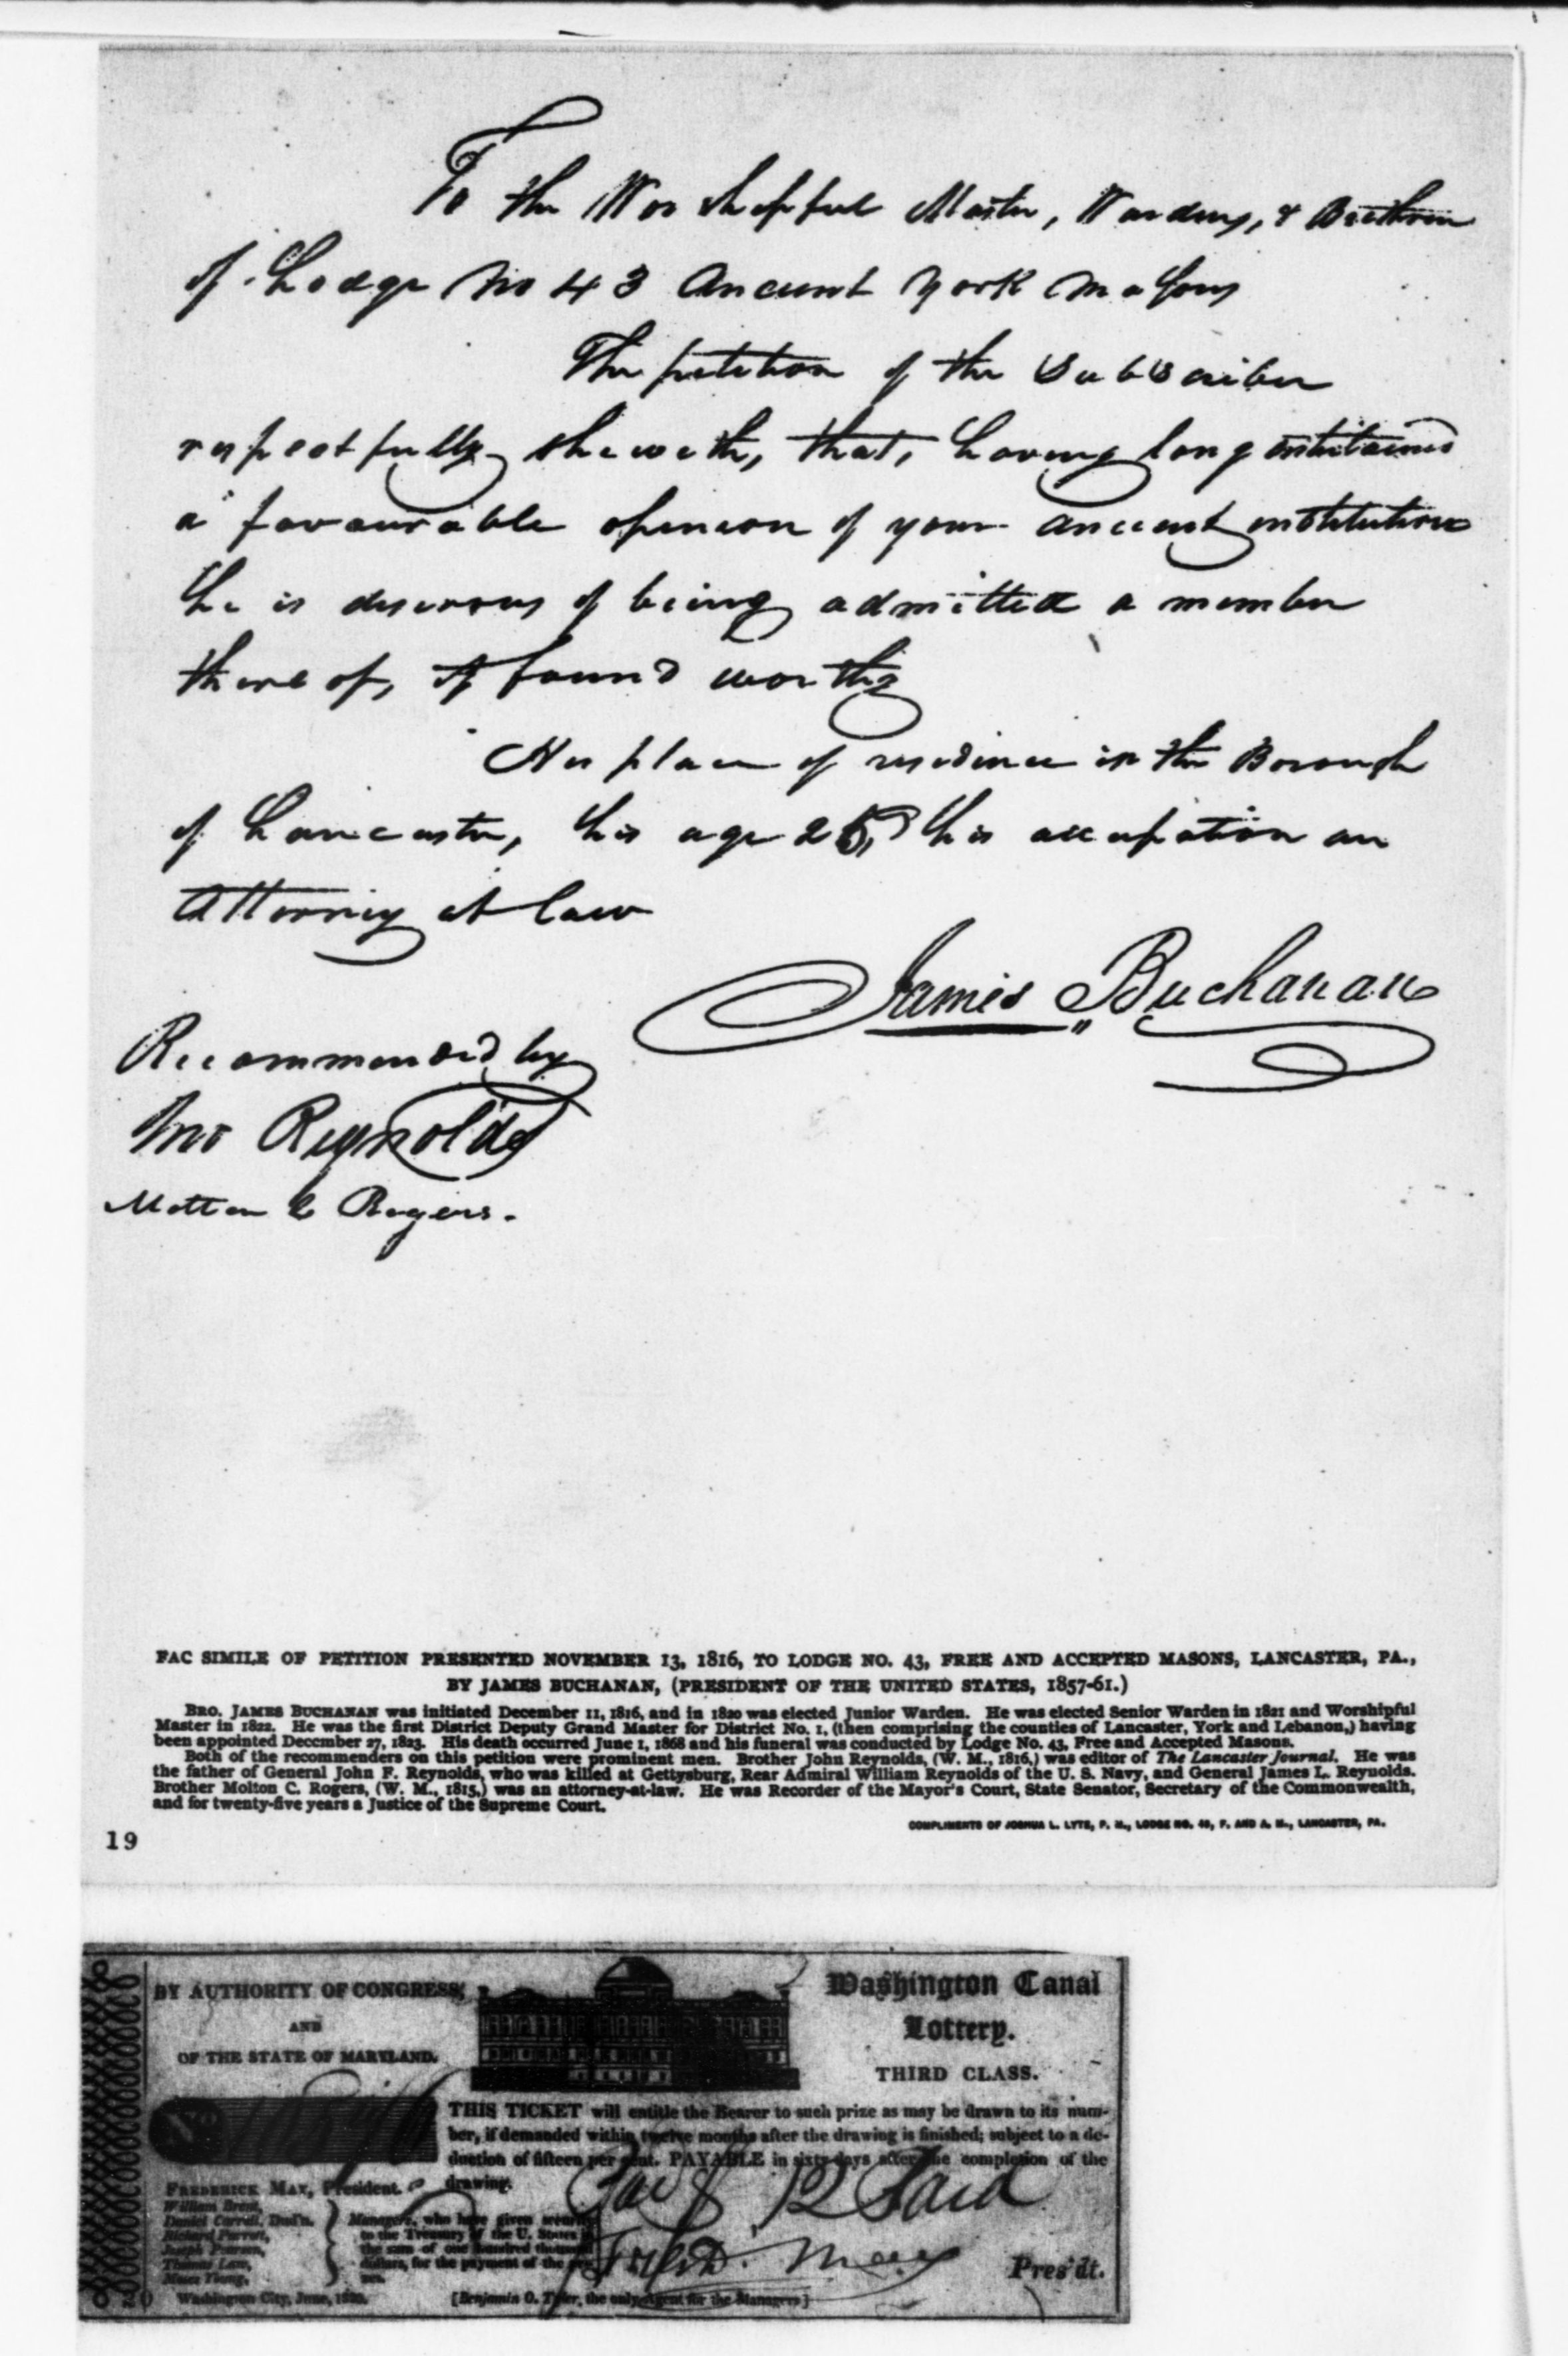 To the Worshipful Master, Wardens, & Brethren
of Lodge No 43 Ancient York Masons
The petition of the Subscriber
respectfully sheweth, that, having long entertained
a favourable opinion of your ancient institution
he is desirous of being admitted a member
thereof, if found worthy
His place of residence is the Borough
of Lancaster, his age 25, his occupation an
Attorney at law
James Buchanan
Recommended by
Jno Reynolds
Molton C Rogers.
FAC SIMILE OF PETITION PRESENTED NOVEMBER 13, 1816, TO LODGE NO. 43, FREE AND ACCEPTED MASONS, LANCASTER, PA.,
BY JAMES BUCHANAN, (PRESIDENT OF THE UNITED STATES, 1857-61.)
BRO. JAMES BUCHANAN was initiated December 11, 1816, and in 1820 was elected Junior Warden. He was elected Senior Warden in 1821 and Worshipful
Master in 1822. He was the first District Deputy Grand Master for District No. 1, (then comprising the counties of Lancaster, York and Lebanon,) having
been appointed December 27, 1823. His death occurred June 1, 1868 and his funeral was conducted by Lodge No. 43, Free and Accepted Masons.
Both of the recommenders on this petition were prominent men. Brother John Reynolds, (W. M., 1816,) was editor of The Lancaster Journal. He was
the father of General John F. Reynolds, who was killed at Gettysburg, Rear Admiral William Reynolds of the U. S. Navy, and General James L. Reynolds.
Brother Molton C. Rogers, (W. M., 1815,) was an attorney-at-law. He was Recorder of the Mayor's Court, State Senator, Secretary of the Commonwealth,
and for twenty-five years a Justice of the Supreme Court.
COMPLIMENTS OF JOSHUA L. LYTE, P. M., LODGE NO. 43, F. AND A. M., LANCASTER, PA.
19
BY AUTHORITY OF CONGRESS,
AND
OF THE STATE OF MARYLAND.
Washington Canal
Lottery.
THIRD CLASS.
No
THIS TICKET will entitle the Bearer to such prize as may be drawn to its num-
ber, if demanded within twelve months after the drawing is finished; subject to a de-
duction of fifteen per cent. PAYABLE in sixty days after the completion of the
drawing.
FREDERICK MAY, President.
William Brent,
Daniel Carroll, Dud'n.
Richard Parrott,
Joseph Pearson,
Thomas Law,
Moses Young,
Managers, who have given security
to the Treasury of the U. States in
the sum of one hundred thousand
dollars, for the payment of the
Paid
May
Pres'dt.
Washington City, June,
[Benjamin O. Tyler, the only Agent for the Managers]